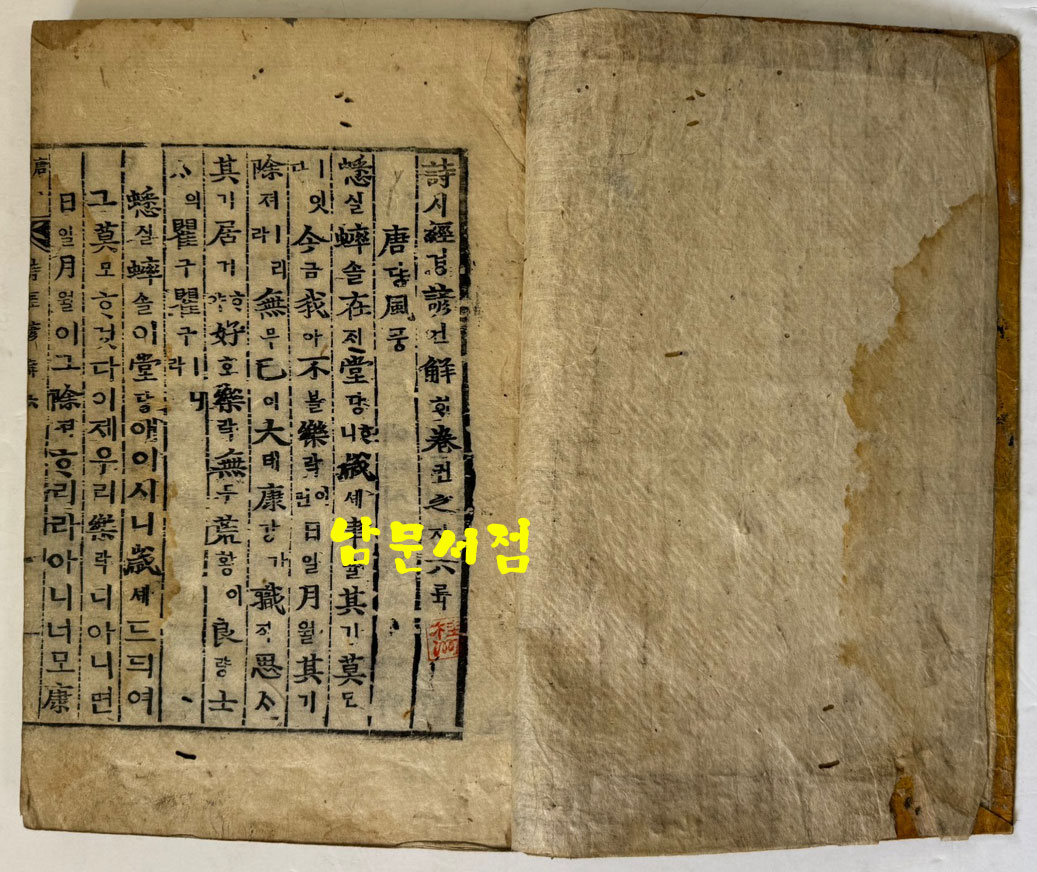 詩시經경諺언解ᄒᆡ卷권之지六륙
唐당風풍
蟋실蟀솔在ᄌᆡ堂당ᄒᆞ니歲셰聿율其기莫모
今금我아不블樂락이면日일月월其기
除져ㅣ리라無무已이大태康강가職직思ᄉᆞ
其기居거ᄒᆞ야好호樂락無무荒황이良량士
ᄉᆞ의瞿구瞿구ㅣ니라
蟋실蟀솔이堂당애이시니歲셰드듸여
그莫모ᄒᆞ것다이제우리樂락디아니면
日일月월이그除져ᄒᆞ리라아니너모康
남문서점